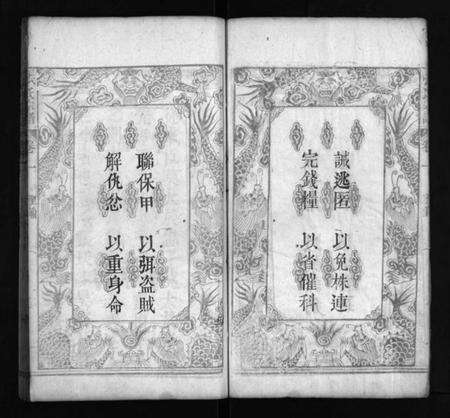 誡逃匿 以免株連
完錢糧 以省催科
聯保甲 以弭盗賊
解仇忿 以重身命